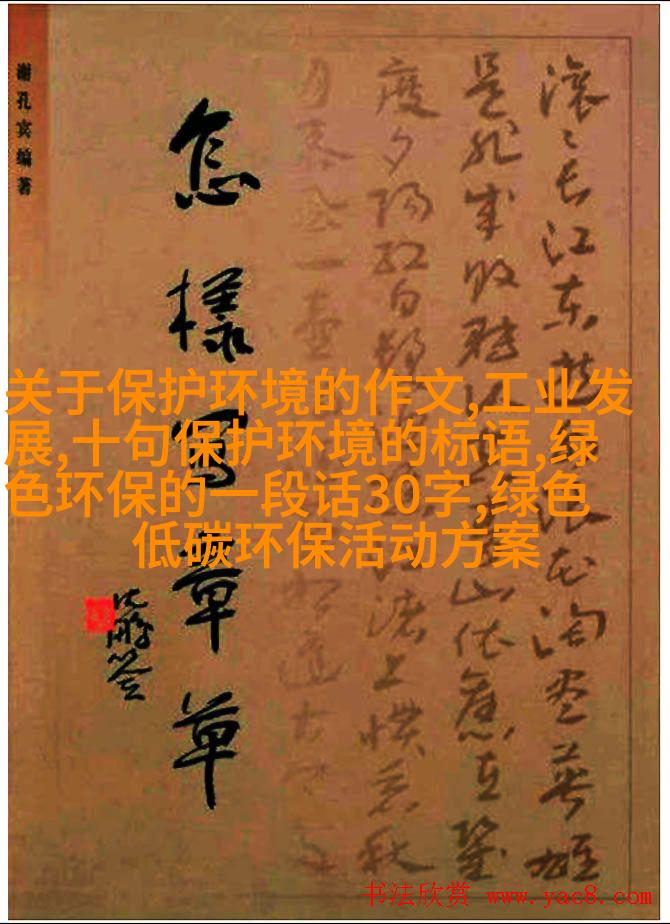 谢孔宾编著
怎樣寫章草
滚〻长江东逝水浪花淘尽英雄
是非成败转山依旧在几
度夕阳红白渚上惯看秋
月春风一壶
关于保护环境的作文,工业发
展,十句保护环境的标语,绿
色环保的一段话30字,绿色
低碳环保活动方案
书法欣赏 www.yac8.com